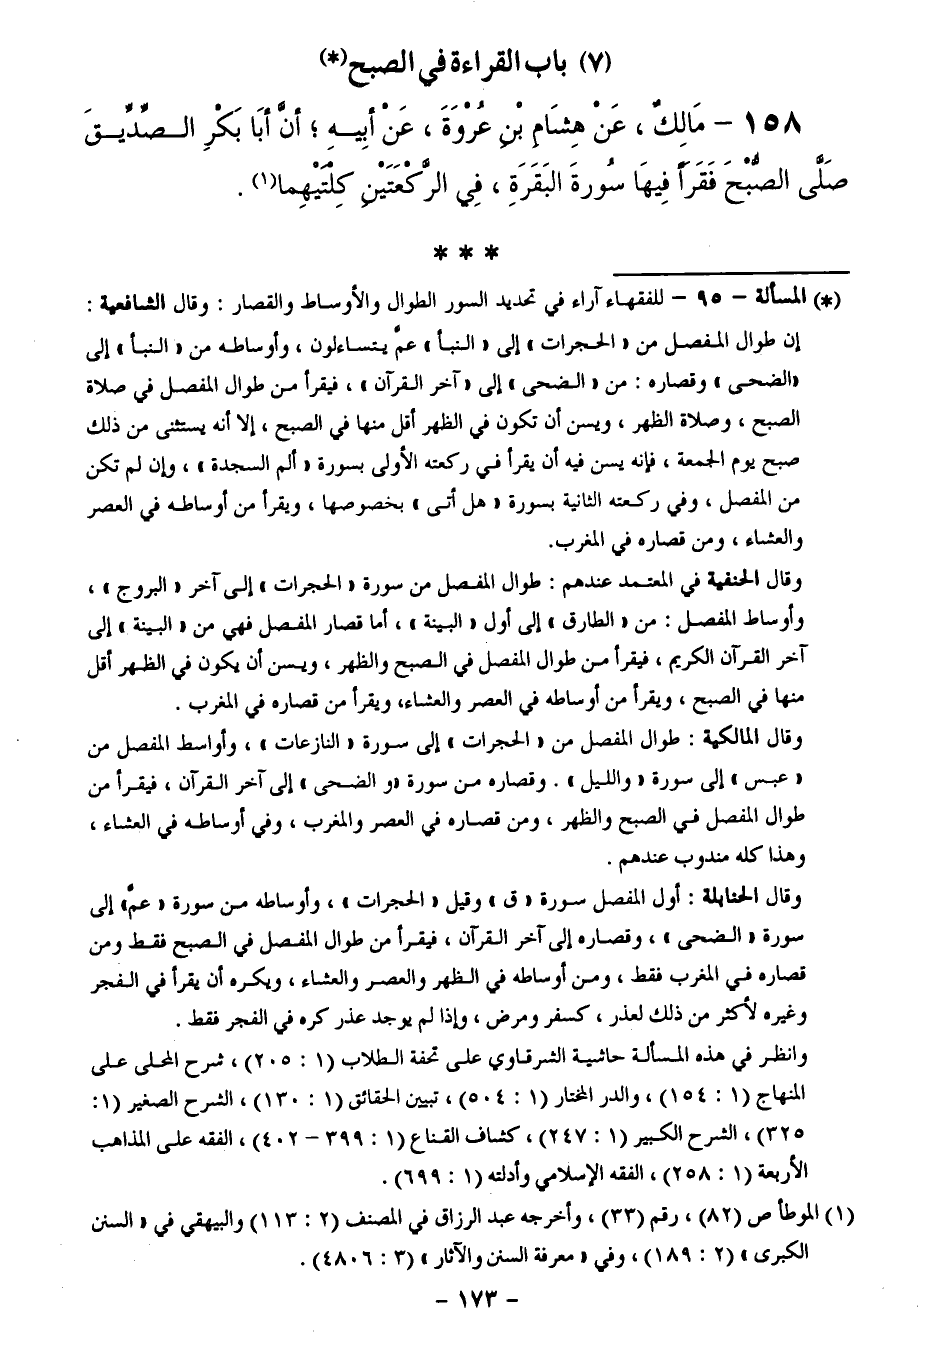 (٧) باب القراءة في الصبح(*)
١٥٨ – مَالِكٌ ، عَنْ هِشَامِ بْنِ عُرْوَةَ ، عَنْ أَبِيهِ ؛ أَنَّ أَبَا بَكْرٍ الصِّدِّيقَ
صَلَّى الصُّبْحَ فَقَرَأَ فِيهَا سُورَةَ البَقَرَةِ ، فِي الرَّكْعَتَيْنِ كِلْتَيْهِما(١) .
* * *
(*) المسألة – ٩٥ – للفقهاء آراء في تحديد السور الطوال والأوساط والقصار : وقال الشافعية :
إن طوال المفصل من « الحجرات » إلى « النبأ » عمَّ يتساءلون ، وأوساطه من « النبأ » إلى
«الضحى » وقصاره : من « الضحى » إلى « آخر القرآن » ، فيقرأ من طوال المفصل في صلاة
الصبح ، وصلاة الظهر ، ويسن أن تكون في الظهر أقل منها في الصبح ، إلا أنه يستثنى من ذلك
صبح يوم الجمعة ، فإنه يسن فيه أن يقرأ في ركعته الأولى بسورة « ألم السجدة » ، وإن لم تكن
من المفصل ، وفي ركعته الثانية بسورة « هل أتى » بخصوصها ، ويقرأ من أوساطه في العصر
والعشاء ، ومن قصاره في المغرب.
وقال الحنفية في المعتمد عندهم : طوال المفصل من سورة « الحجرات » إلى آخر « البروج » ،
وأوساط المفصل : من « الطارق » إلى أول « البينة » ، أما قصار المفصل فهي من « البينة » إلى
آخر القرآن الكريم ، فيقرأ من طوال المفصل في الصبح والظهر ، ويسن أن يكون في الظهر أقل
منها في الصبح ، ويقرأ من أوساطه في العصر والعشاء، ويقرأ من قصاره في المغرب .
وقال المالكية : طوال المفصل من « الحجرات » إلى سورة « النازعات » ، وأواسط المفصل من
« عبس » إلى سورة « والليل » . وقصاره من سورة «و الضحى » إلى آخر القرآن ، فيقرأ من
طوال المفصل في الصبح والظهر ، ومن قصاره في العصر والمغرب ، وفي أوساطه في العشاء ،
وهذا كله مندوب عندهم .
وقال الحنابلة : أول المفصل سورة « ق » وقيل « الحجرات » ، وأوساطه من سورة « عمَّ» إلى
سورة « الضحى » ، وقصاره إلى آخر القرآن ، فيقرأ من طوال المفصل في الصبح فقط ومن
قصاره في المغرب فقط ، ومن أوساطه في الظهر والعصر والعشاء ، ويكره أن يقرأ في الفجر
وغيره لأكثر من ذلك لعذر ، كسفر ومرض ، وإذا لم يوجد عذر كره في الفجر فقط .
وانظر في هذه المسألة حاشية الشرقاوي على تحفة الطلاب (١ : ٢٠٥) ، شرح المحلى على
المنهاج (١ : ١٥٤) ، والدر المختار (١ : ٥٠٤) ، تبيين الحقائق (١ : ١٣٠) ، الشرح الصغير (١:
٣٢٥) ، الشرح الكبير (١ : ٢٤٧) ، كشاف القناع (١ : ٣٩٩ – ٤٠٢) ، الفقه على المذاهب
الأربعة (١ : ٢٥٨) ، الفقه الإسلامي وأدلته (١ : ٦٩٩) .
(١) الموطأ ص (٨٢) ، رقم (٣٣) ، وأخرجه عبد الرزاق في المصنف (٢ : ١١٣) والبيهقي في « السنن
الكبرى » (٢ : ١٨٩) ، وفي « معرفة السنن والآثار » (٣ : ٤٨٠٦) .
– ١٧٣ –